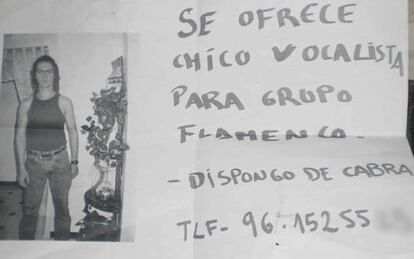 SE OFRECE
CHICO VOCALISTA
PARA GRUPO
FLAMENCO -
- DISPONGO DE CABRA
TLF- 96.15255